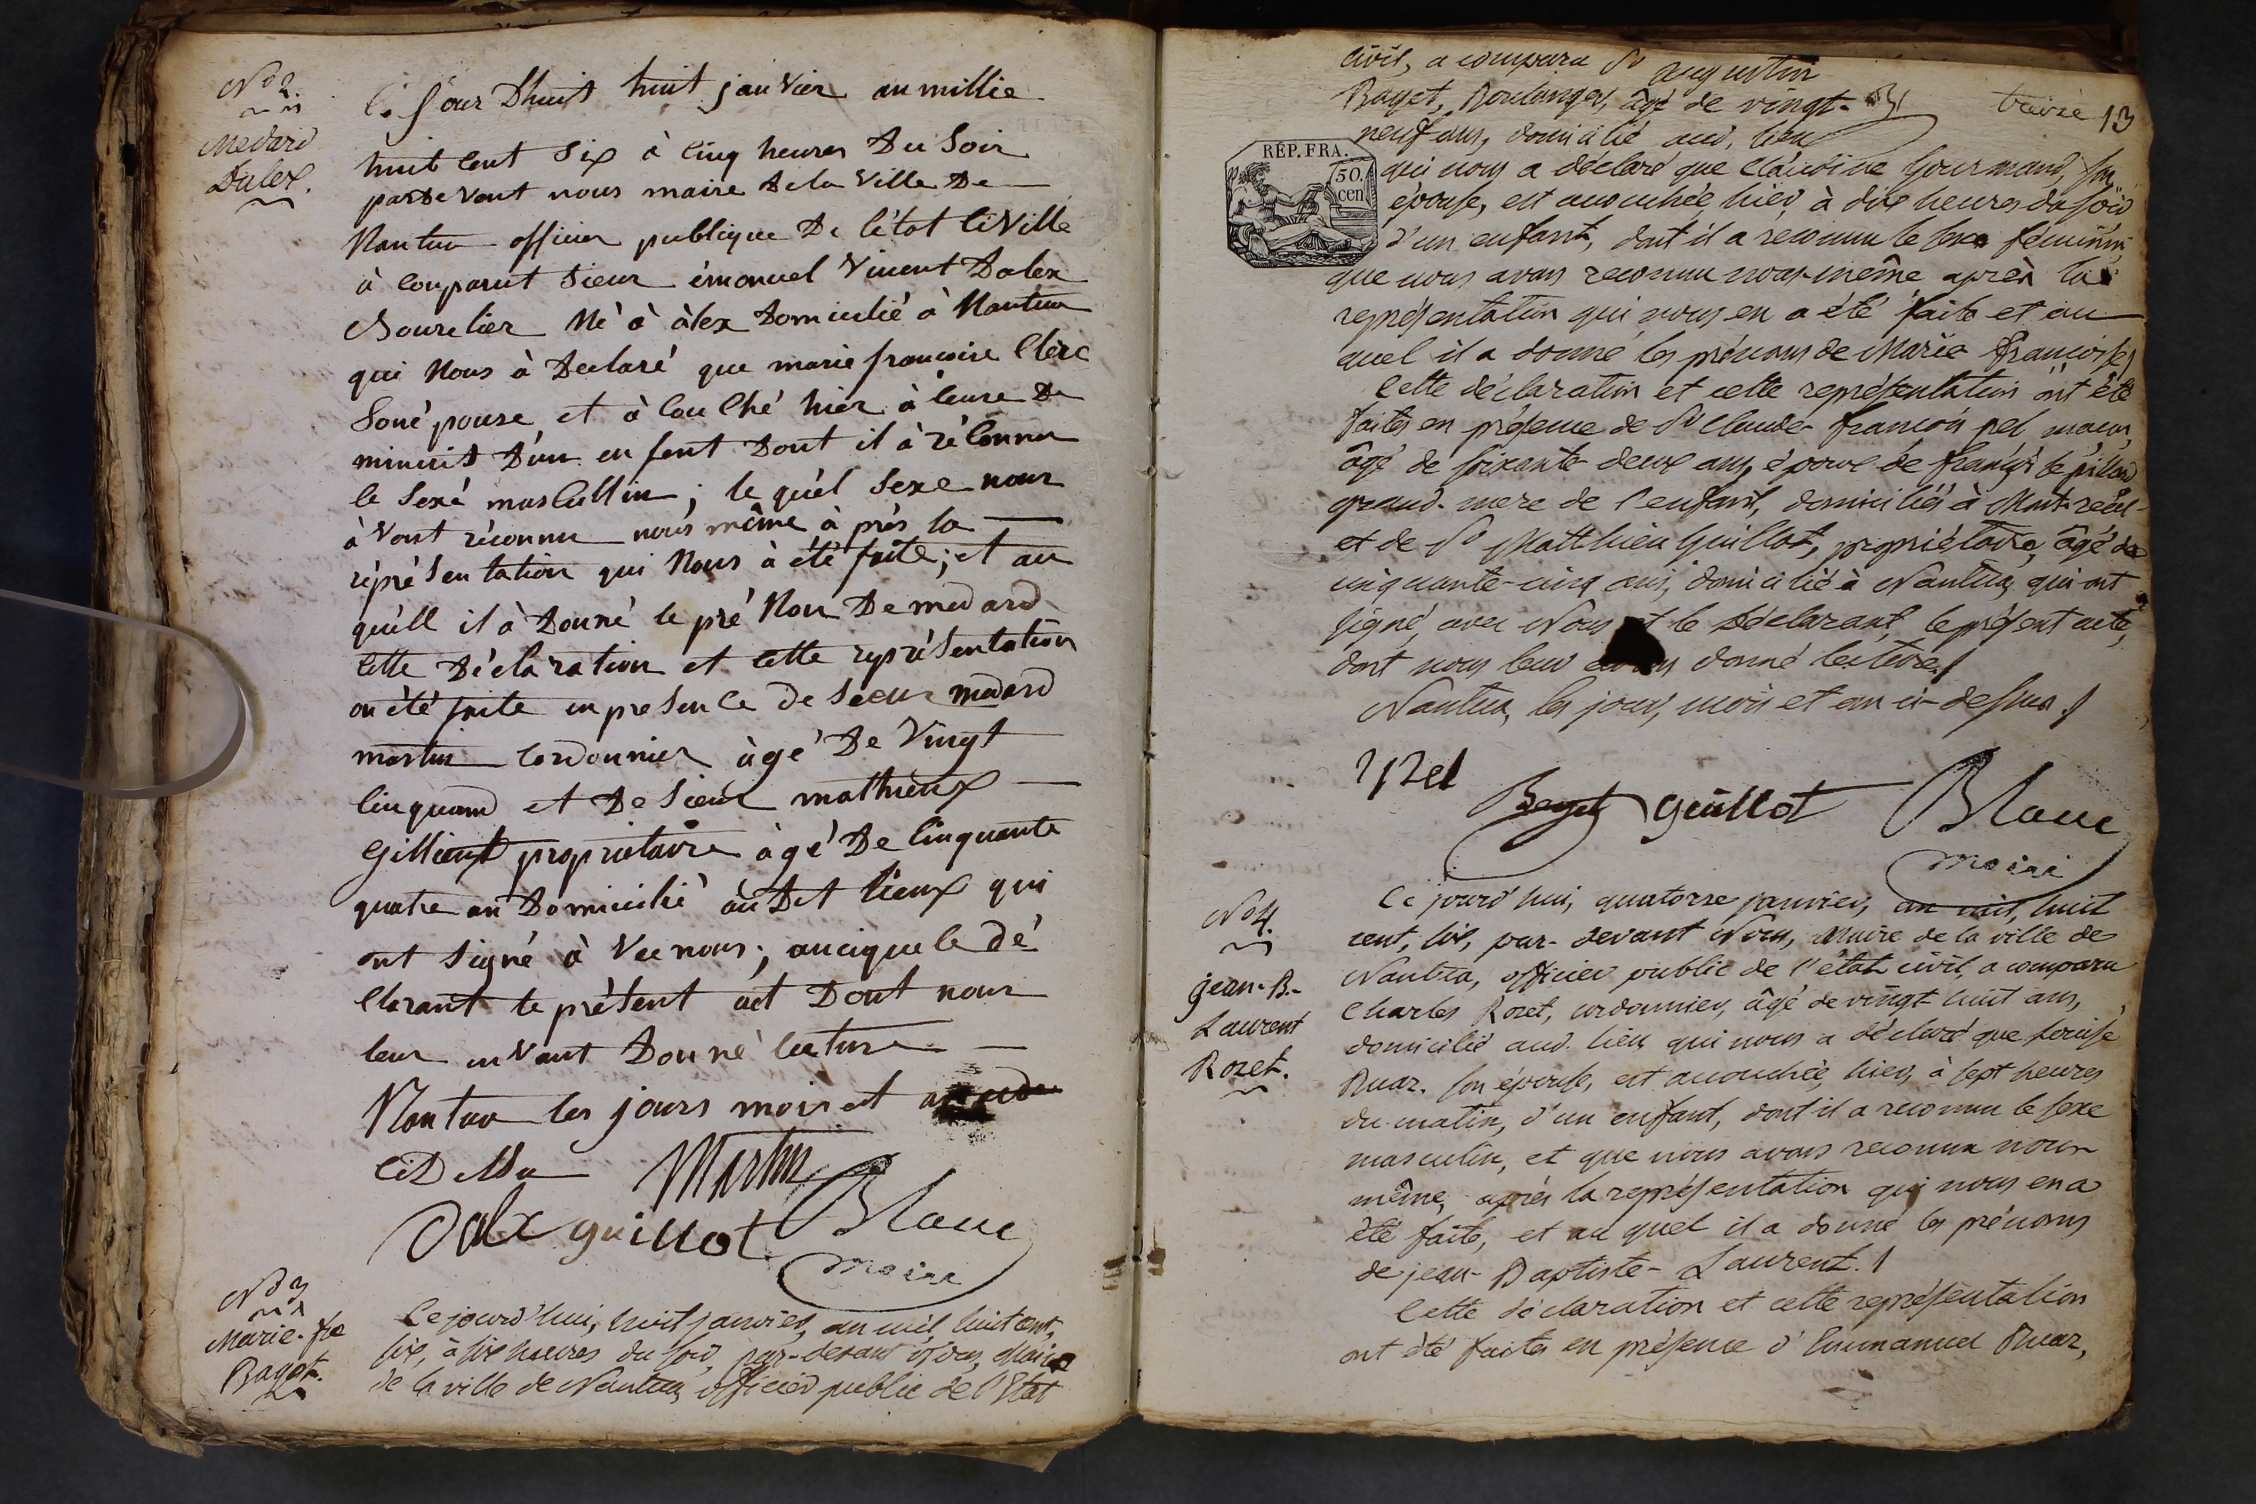 No 2.
Medard
Dalex.
Ce Jour Dhuit huit janvier an millie
huit Cent Six à Cinq heures Du Soir
parde vant nous maire De la Ville De
Nantua officier publique De l'étot CiVille
à Comparut Sieur émanuel Vincent Dalex
Bourelier Né à àlex Domicilié à Nantua
qui Nous à Declaré que marie francoise Clerc
Soné pouse et à Couché hier à leure De
minuit D'un en fent Dont il à réConnu
le Sexé masCullin; le quél Sexe nous
à Vont réconnu nous même à prés la
répréSentation qui Nous à été faite; et au
quéll il à Donné le pré Non De medard
Cette Déclaration et Cette répréSentation
on été faite en preSence De Sieur medard
martin Cordonnier àgé De Vingt
Cinquand et De Sieur mathieux
Gillient propriétaire àgé De Cinquante
quatre an Domicilié àu Dit lieux qui
ont Signé à Vec nous; ancique le Dé
Clarant le préSent act Dont nous
leur en Vant Donné lecture
Nantua les jours mois et
CiDessu
Martin
Dalex guillot Blanc
maire
No 3
Marie-fse
Baget.
Ce jourd'hui, huit janvier, an mil, huit cent,
six, à six heures du soir, par-devant Nous, Maire
de la ville de Nantua, officier public de l'Etat
treize 13
civil, a comparu Sr augustin
Baget, Boulanger, âgé de vingt-
neuf ans, domicilié aud. lieu
RÉP. FRA.
50.
cen
qui nous a déclaré que Claudine Gourmand, son
épouse, est accouchée, hier, à dix heures du soir
d'un enfant, dont il a reconnu le sexe féminin,
que nous avons reconnu nous-même après la
représentation qui nous en a été faite et au
quel il a donné les prénoms de Marie Françoise
Cette déclaration et cette représentation ont été
faites en présence de Sr Claude françois pel maçon,
âgé de soixante deux ans, époux de
grand-mere de l'enfant, domiciliés à Mont-réal
et de Sr Matthieu Guillot, propriétaire, âgé de
cinquante-cinq ans, domicilié à Nantua, qui ont
signé, avec Nous et le déclarant, le présent acte,
dont nous leur avons donné lecture.
Nantua, les jour, mois et an ci-dessus.
Baget guillot Blanc
maire
No 4.
jean-B.-
Laurent
Rozet.
Ce jourd'hui, quatorze janvier, an mil, huit
cent, six, par-devant Nous, Maire de la ville de
Nantua, officier public de l'état civil, a comparu
Charles Rozet, cordonnier, âgé de vingt-huit ans,
domicilié aud. lieu, qui nous a déclaré que Louise
Ruaz. son épouse, est accouchée, hier, à sept heures
du matin, d'un enfant, dont il a reconnu le sexe
masculin, et que nous avons reconnu nous-
même, après la représentation qui nous en a
été faite, et au quel il a donné les prénoms
de jean-Baptiste-Laurent.
Cette déclaration et cette représentation
ont été faites en présence d'Emmanuel Ruaz,